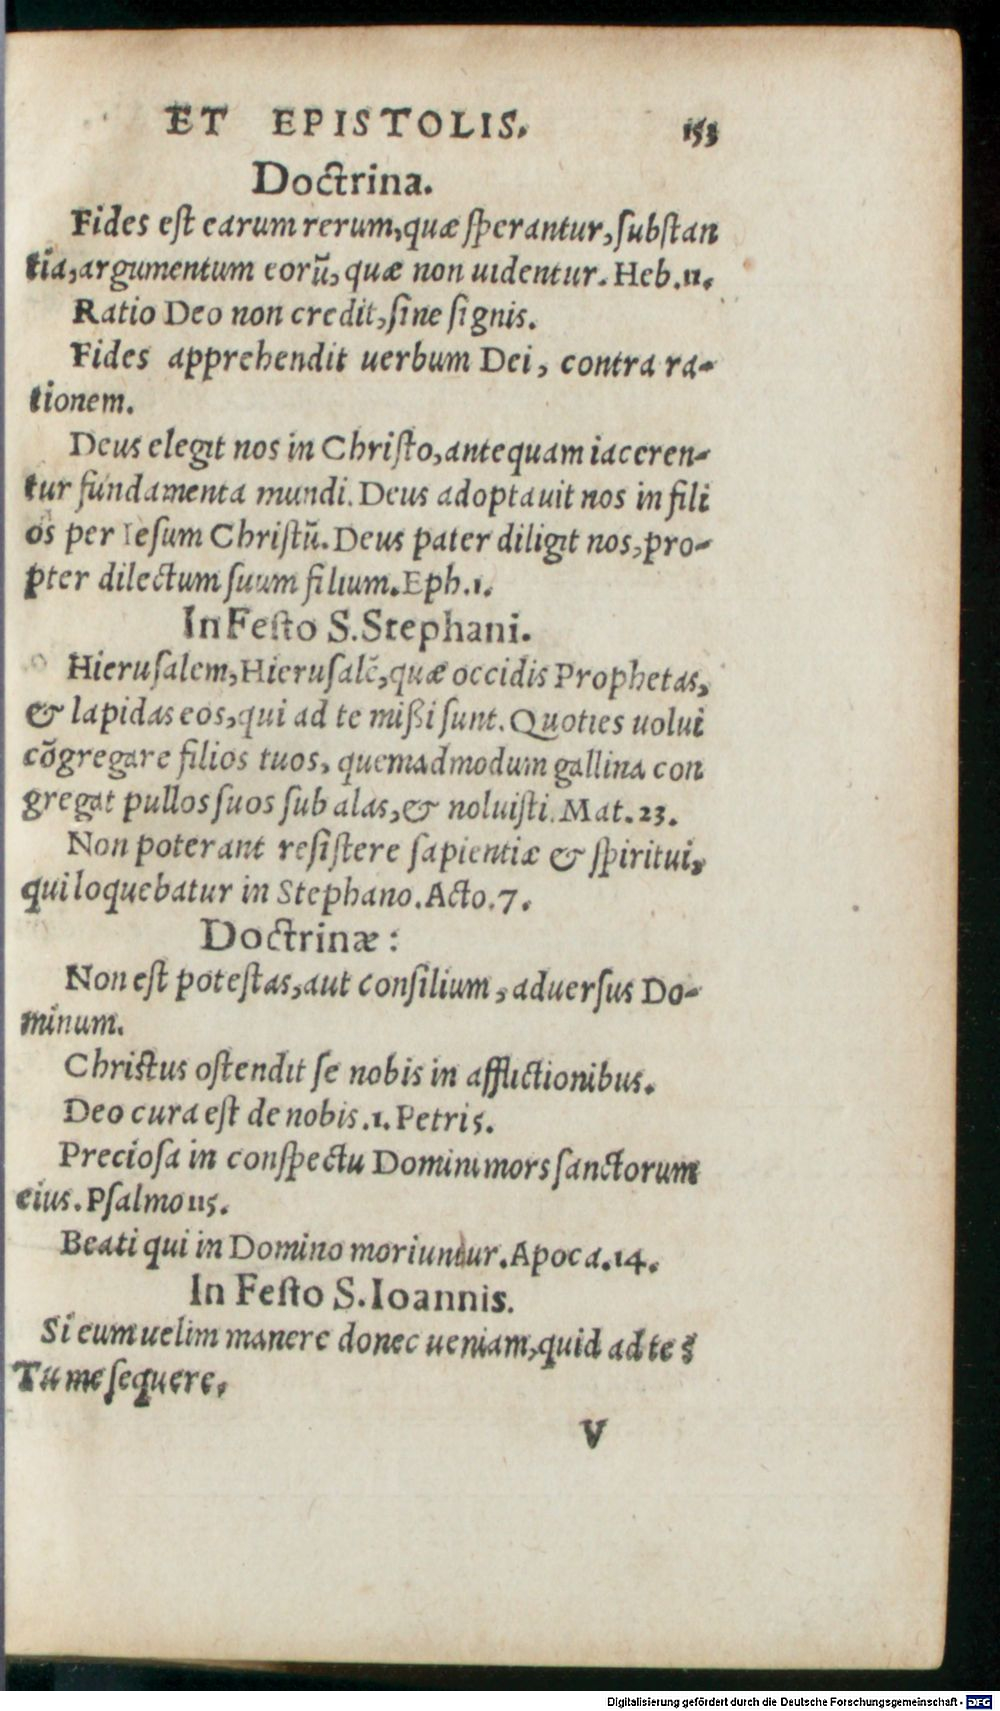 ET EPISTOLIS. 153
Doctrina.
Fides est earum rerum, quæ sperantur, substan
tia, argumentum eorũ, quæ non uidentur. Heb. 11.
Ratio Deo non credit, sine signis.
Fides apprehendit uerbum Dei, contra ra-
tionem.
Deus elegit nos in Christo, antequam iaceren-
tur fundamenta mundi. Deus adoptauit nos in fili
os per Iesum Christũ. Deus pater diligit nos, pro-
pter dilectum suum filium. Eph. 1.
In Festo S. Stephani.
Hierusalem, Hierusalẽ, quæ occidis Prophetas,
& lapidas eos, qui ad te mißi sunt. Quoties uolui
cõgregare filios tuos, quemadmodum gallina con
gregat pullos suos sub alas, & noluisti. Mat. 23.
Non poterant resistere sapientiæ & spiritui,
qui loquebatur in Stephano. Acto. 7.
Doctrinæ:
Non est potestas, aut consilium, aduersus Do-
minum.
Christus ostendit se nobis in afflictionibus.
Deo cura est de nobis. 1. Petri 5.
Preciosa in conspectu Domini mors sanctorum
eius. Psalmo 115.
Beati qui in Domino moriuntur. Apoca. 14.
In Festo S. Ioannis.
Si eum uelim manere donec ueniam, quid ad te?
Tu me sequere.
V
Digitalisierung gefördert durch die Deutsche Forschungsgemeinschaft - DFG